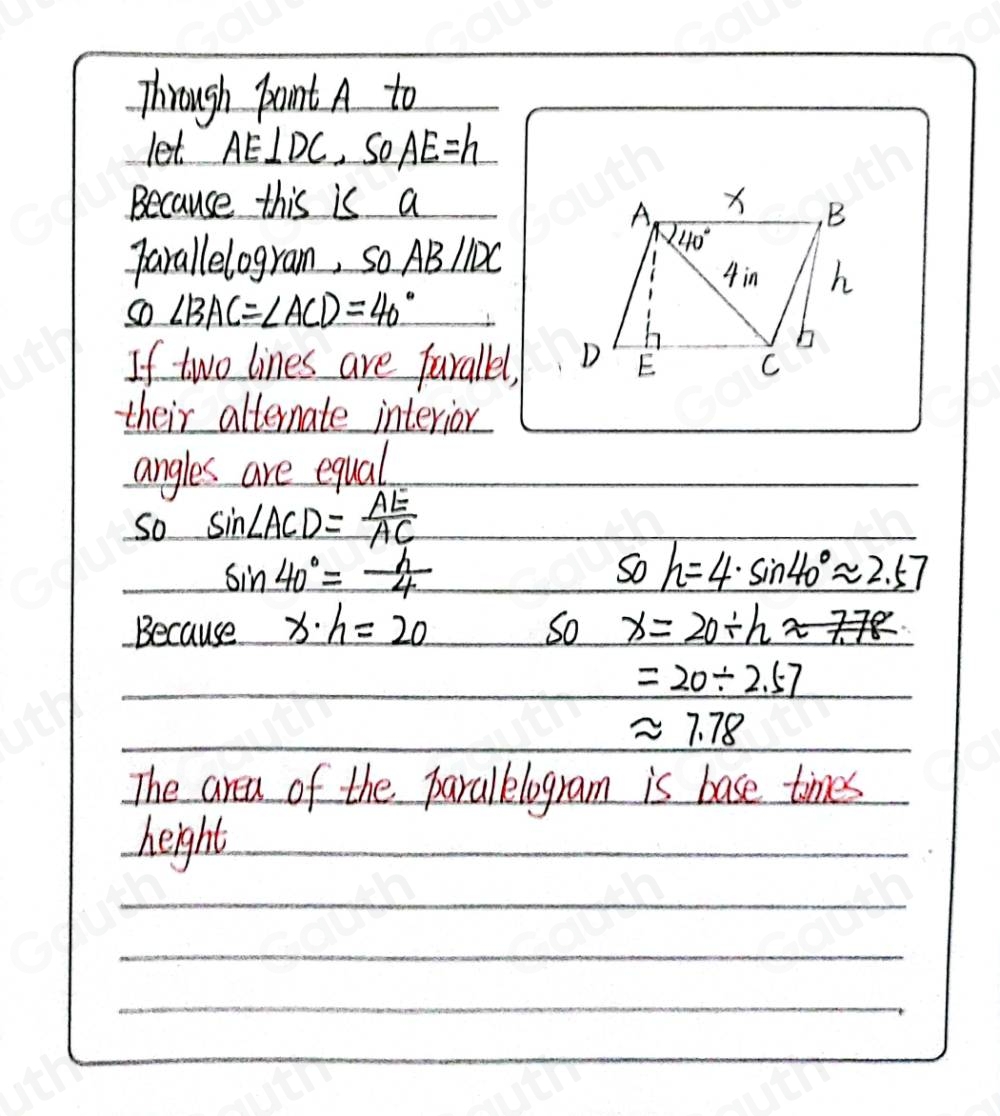 Through point A to
let AE⊥DC, so AE=h
Because this is a
parallelogram, so AB//DC
so ∠BAC=∠ACD=40°
If two lines are parallel,
their alternate interior
angles are equal
so sin∠ACD= AE/AC
sin 40°= h/4 so h=4·sin40°≈2.57
Because x·h=20 so x=20÷h ≈ 7.78
=20÷2.57
≈ 7.78
The area of the parallelogram is base times
height
x
A B
40°
4 in h
D E C
Gauth